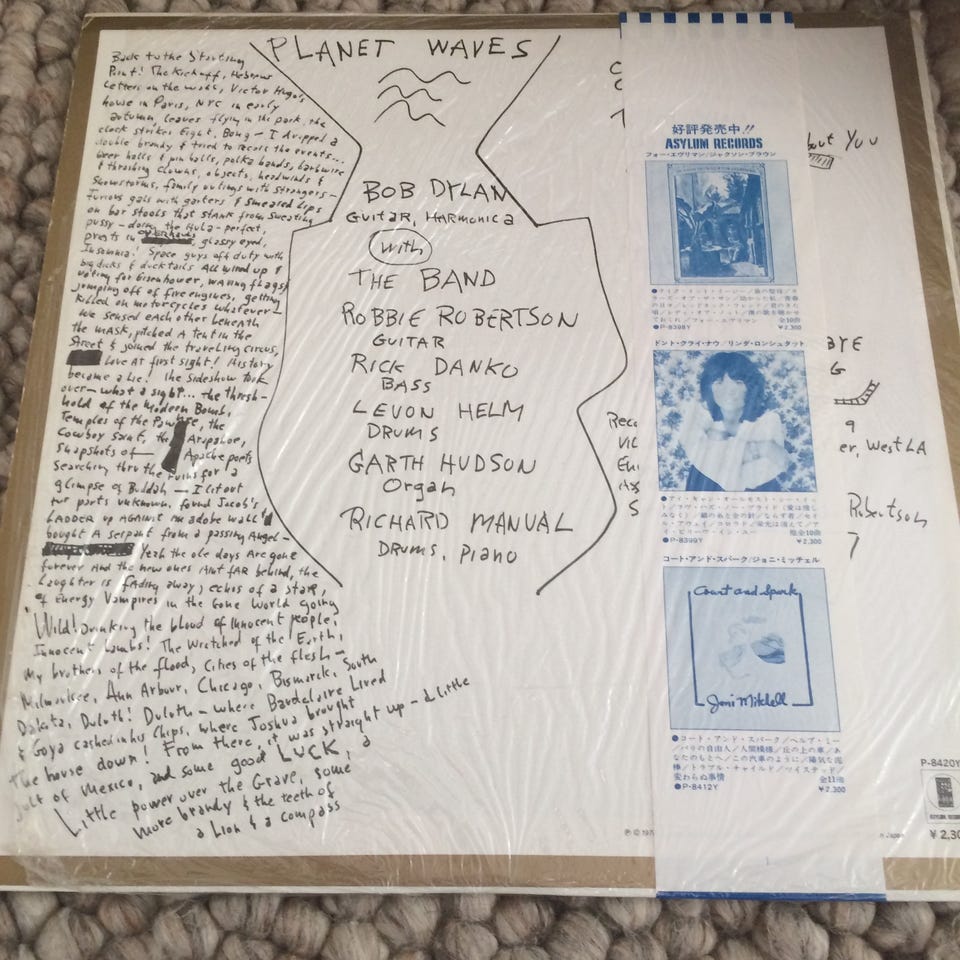 Back to the Starting
Point! The Kickoff, Hebrew
Letters on the wall, Victor Hugo's
house in Paris, NYC in early
autumn, leaves flying in the park, the
clock strikes Eight, Bong — I dropped a
double brandy & tried to recall the events...
beer halls & pin balls, polka bands, barbwire
& thrashing clowns, objects, headwinds &
Snowstorms, family outings with strangers —
Furious gals with garters & smeared Lips
on bar stools that stank from sweating
pussy — doing the Hula — perfect,
priests in overhauls, glassy eyed,
Insomnia! Space guys off duty with
big dicks & ducktails All wired up &
voting for Eisenhower, waving flags &
jumping off of fire engines, getting
killed on motorcycles whatever —
We sensed each other beneath
the MASK, pitched A tent in the
Street & joined the traveling circus,
Love At first sight! History
became a Lie! The sideshow took
over — what a sight... the thresh-
hold of the Modern Bomb,
Temples of the Pawnee, the
Cowboy Saint, the Arapahoe,
Snapshots of Apache poets
Searching thru the ruins for a
glimpse of Buddah — I lit out
for parts unknown, found Jacob's
LADDER up AGAINST an adobe wall &
bought A serpent from a passing Angel —
Yeah the ole days Are gone
forever And the new ones Aint fAR behind, the
Laughter is fAding away, echos of a staR,
of Energy Vampires in the Gone World going
Wild! Drinking the blood of innocent people,
Innocent Lambs! The Wretched of the Earth,
My brothers of the flood, Cities of the flesh —
Milwaukee, Ann Arbour, Chicago, Bismarck, South
Dakota, Duluth! Duluth — where Baudelaire Lived
& Goya cashed in his Chips, where Joshua brought
the house down! From there, it was straight up — a Little
jolt of Mexico, and some good LUCK, a
Little power over the Grave, some
more brandy & the teeth of
a Lion & a compass
PLANET WAVES
BOB DYLAN
Guitar, HARMONICA
with
THE BAND
ROBBIE ROBERTSON
GUITAR
RICK DANKO
BASS
LEVON HELM
DRUMS
GARTH HUDSON
Organ
RICHARD MANUAL
DRUMS, PIANO
好評発売中!!
ASYLUM RECORDS
フォー・エヴリマン/ジャクソン・ブラウン
●P-8398Y ¥2,300
ドント・クライ・ナウ/リンダ・ロンシュタット
●P-8399Y ¥2,300
コート・アンド・スパーク/ジョニ・ミッチェル
Court and Spark
Joni Mitchell
●コート・アンド・スパーク/ヘルプ・ミー
/パリの自由人/人間模様/丘の上の車/あ
なたのもとへ/この汽車のように/陽気な泥
棒/トラブル・チャイルド/ツイステッド/
変わらぬ事情 全11曲
●P-8412Y ¥2,300
You
er, West LA
Robertson
7
P-8420Y
ASYLUM RECORDS
Japan